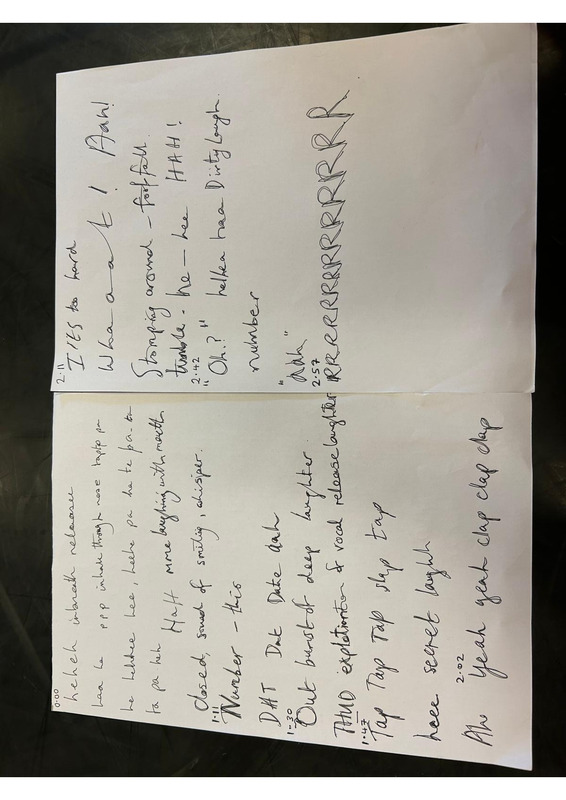 0:00
heheh inbreath release
haa ha ppp inhale through nose
he hehhee hee, heehe pa he te pa
ta pa heh HaH more laughing with mouth
closed, sound of smiling, whisper.
1:11
Number - this
DAT Dat Date dah
1-30
Out burst of deep laughter.
THUD explotation & vocal release laughter
1:47
Tap Tap Tap slap tap
heee secret laugh
2:02
Aha Yeah yeah clap clap clap
2:11
to hard
Whaaat! Aah!
Stomping around - footfall.
he - hee HAH!
2:42
"Oh?" hehhea haa Dirty Laugh.
number
"Aah"
2:57
RRRRRRRRRRRRRRR.